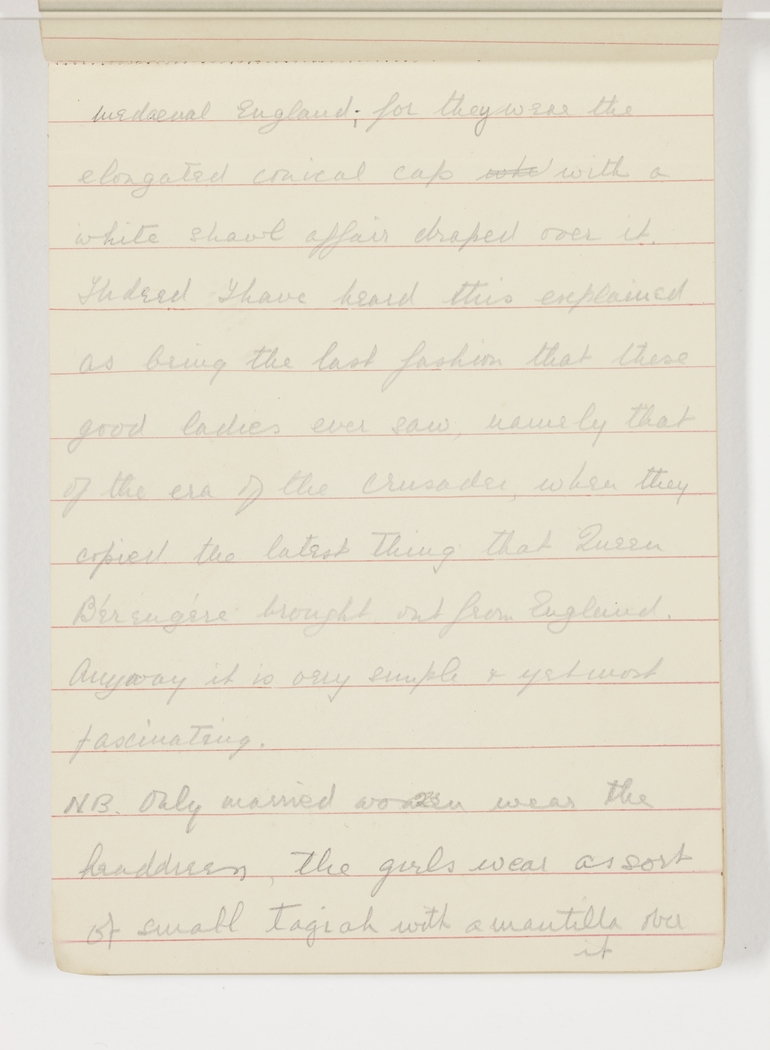 medaeval England; for they wear the
elongated conical cap with a
white shawl affair draped over it.
Indeed I have heard this explained
as being the last fashion that these
good ladies ever saw, namely that
of the era of the Crusades, when they
copied the latest thing that Queen
Bérengére brought out from England.
Anyway it is very simple & yet most
fascinating.
N.B. Only married women wear the
headdress, the girls wear a sort
of small tagiah with a mantilla over
it